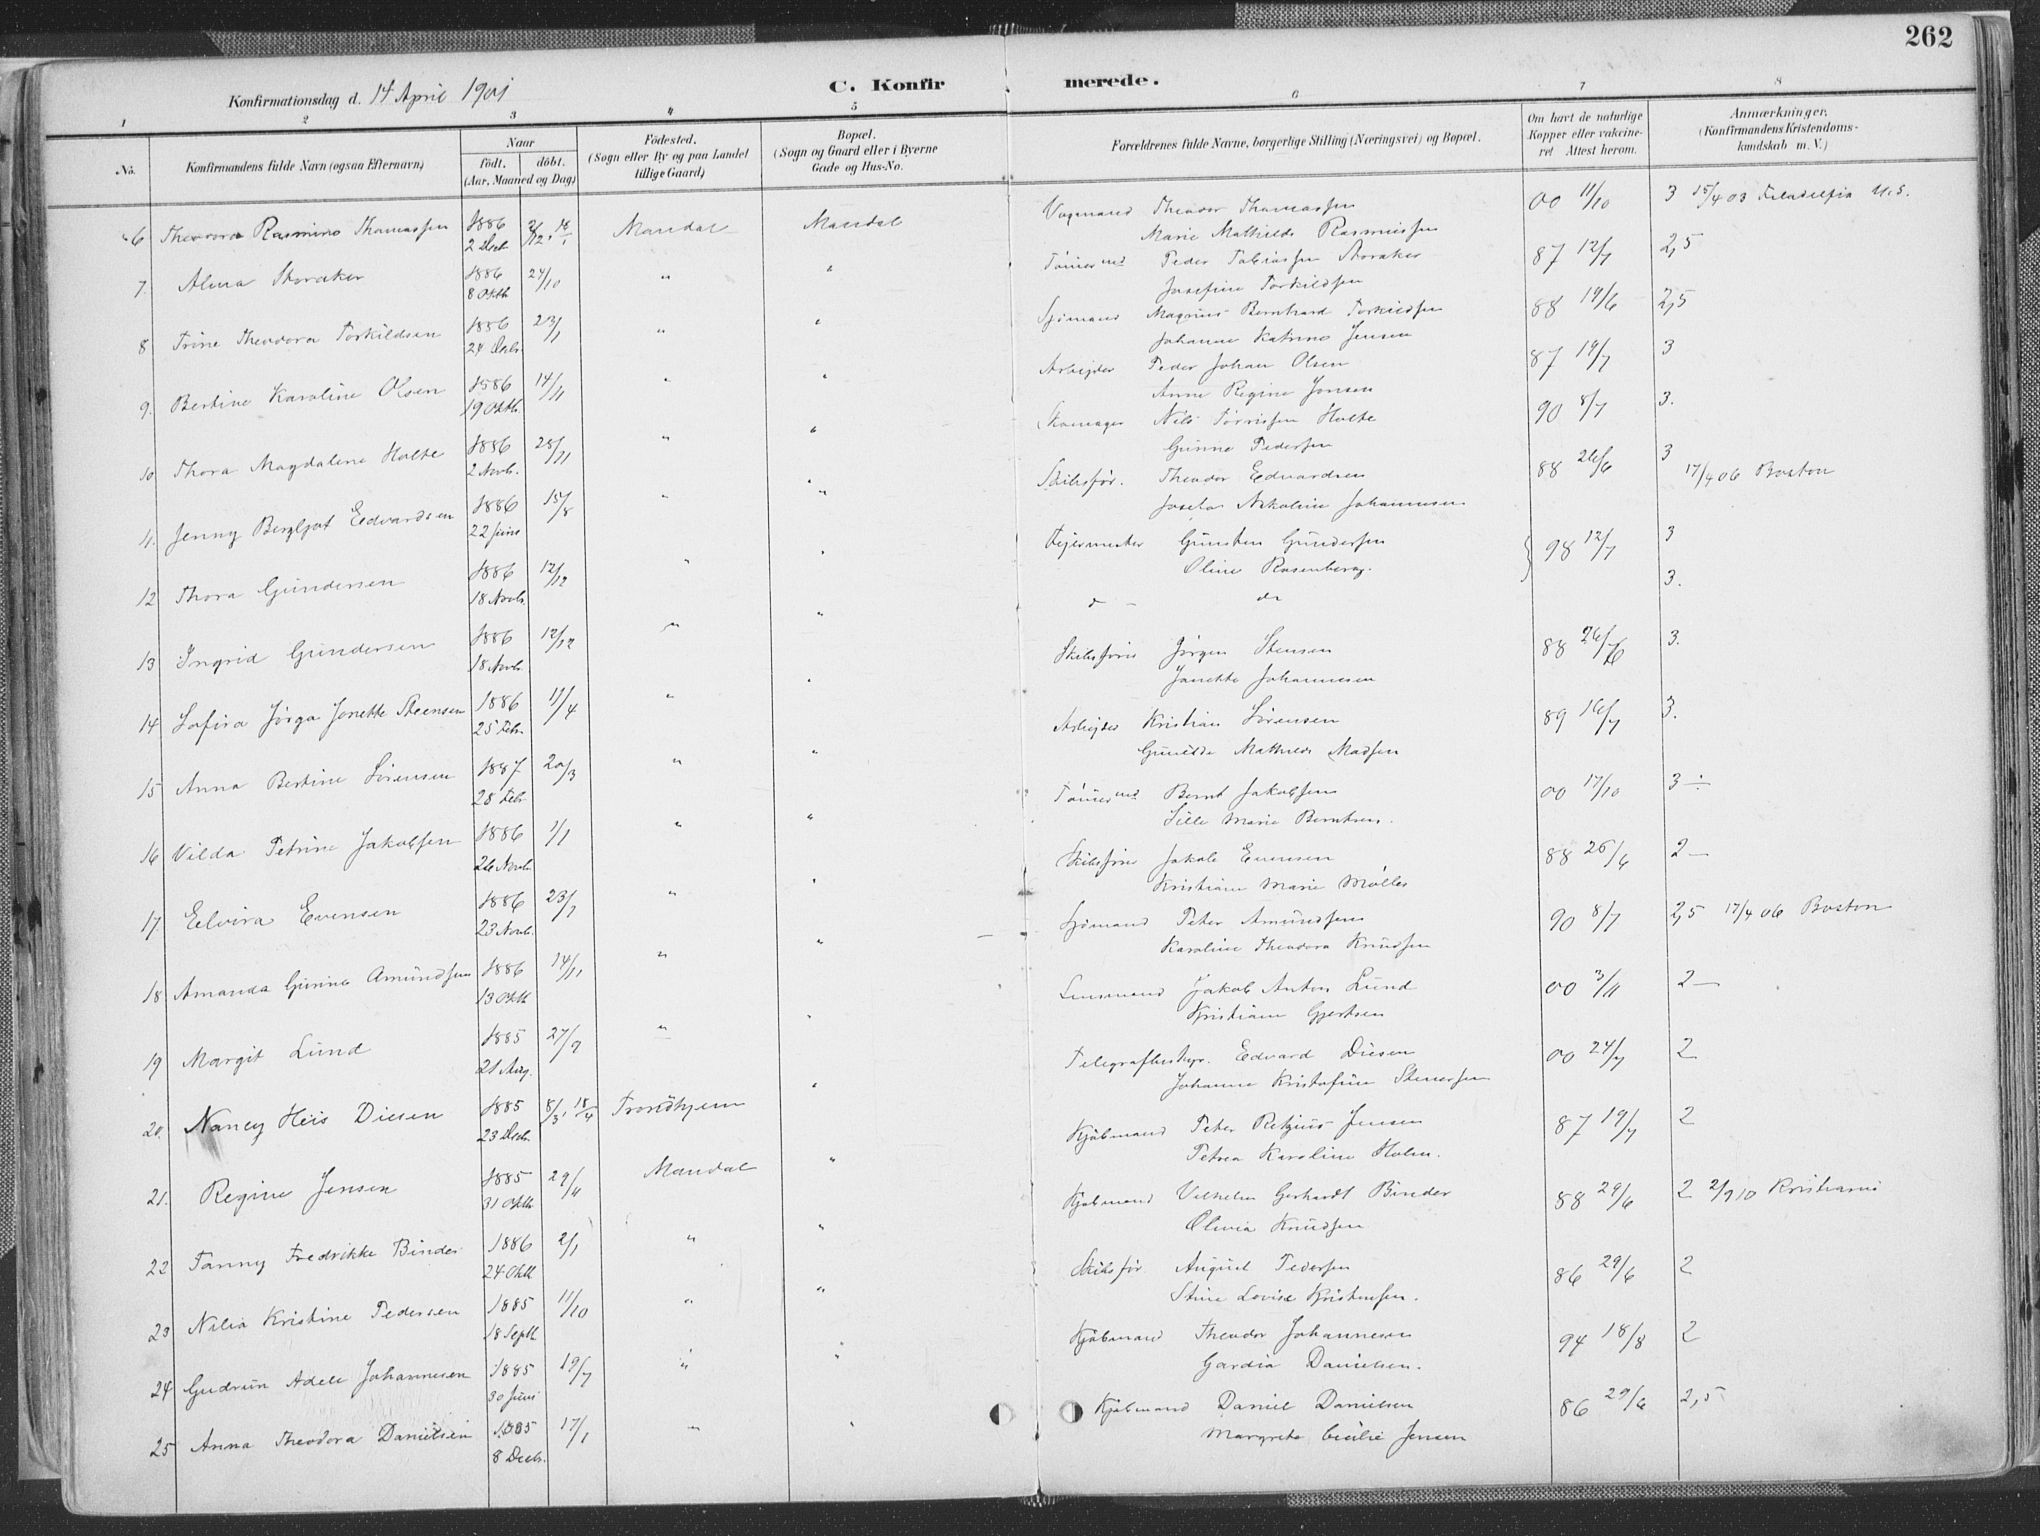 262
C. Konfirmerede.
Konfirmationsdag d. 14 April 1901
1 2 3 4 5 6 7 8
No.
Konfirmandens fulde Navn (ogsaa Efternavn)
Naar
födt. döbt.
(Aar, Maaned og Dag)
Födested.
(Sogn eller By og paa Landet
tillige Gaard)
Bopæl.
(Sogn og Gaard eller i Byerne
Gade og Hus-No.
Forældrenes fulde Navne, borgerlige Stilling (Næringsvei) og Bopæl.
Om havt de naturlige
Kopper eller vakcine-
ret Attest herom.
Anmærkninger.
(Konfirmandens Kristendoms-
kundskab m. V.)
6 Theodora Rasmine Thomassen 1886 2 Decb. Mandal Mandal Theodor Thomassen 00 11/10 3 15/4 03 Filadelfia U.S.
Marie Mathilde Rasmussen
7. Alma Storaker 1886 8 Oktb 24/10 " " Tømmermd Peder Tobiassen Storaker 87 12/7 2,5
Josefine Torkildsen
8 Trine Theodora Torkildsen 1886 24 Decbr. 23/1 " " Sjømand Magnus Bernhard Torkildsen 88 19/6 2,5
Johanne Katrine Jensen
9. Bertine Karoline Olsen 1886 19 Oktb. 14/11 " " Arbejder Peder Johan Olsen 87 19/7 3
Anne Regine Jonsen
10 Thora Magdalene Holte 1886 2 Novb. 28/11 " " Skomager Nils Tørrissen Holte 90 8/7 3.
Gunne Pedersen
11. Jenny Bergljot Edvardsen 1886 22 Juni 15/8 " " Skibsfør. Theodor Edvardsen 88 26/6 3 17/4 06 Boston
Josefa Nikoline Johannesen
12 Thora Gundersen 1886 18 Novb. 12/12 " " Fejermester Gunsten Gundersen 98 12/7 3
Oline Rosenberg.
13 Ingrid Gundersen 1886 18 Novb. 12/12 " " do do 3.
14 Josfira Jørga Jonette Steensen 1886 25 Febr. 11/4 " " Skibsfører Jørgen Stensen 88 26/6 3.
Janette Johannesen
15 Anna Bertine Sørensen 1887 28 Febr. 20/3 " " Arbejder Kristian Sørensen 89 16/7 3.
Gunilde Mathilde Madsen
16 Vilda Petrine Jakobsen 1886 26 Novb. 1/1 " " Tømmermd Bernt Jakobsen 00 17/10 3 ÷
Sille Marie Berntsen.
17. Elvira Evensen 1886 23 Novb. 23/1 " " Skibsfører Jakob Evensen 88 26/6 2 —
Kristiane Marie Møller
18 Amanda Gunne Amundsen 1886 13 Oktb 14/11 " " Sjømand Peter Amundsen 90 8/7 2,5 17/4 06 Boston
Karoline Theodora Knudsen
19 Margit Lund 1885 21 Aug. 27/9 " " Lensmand Jakob Anton Lund 00 3/11 2 —
Kristiane Gjertsen
20. Nancy Heis Diesen 1885 23 Decb. 8/3, 18/4 Trondhjem " Telegrafbestyr. Edvard Diesen 00 24/7 2
Johanne Kristofine Stenersen
21. Regine Jensen 1885 31 Oktb 29/11 Mandal " Kjøbmand Peter Retzius Jensen 87 19/7 2
Petrea Karoline Holm.
22 Fanny Fredrikke Binder 1886 24 Oktb 2/1 " " Kjøbmand Vilhelm Gerhardt Binder 88 29/6 2 2/9 10 Kristiania
Olivia Knudsen
23 Nilia Kristine Pedersen 1885 18 Septb 11/10 " " Skibsfør. August Pedersen 86 29/6 2
Stine Lovise Kristensen.
24 Gudrun Adele Johannesen 1885 30 Juni 19/7 " " Kjøbmand Theodor Johannesen 94 18/8 2
Gardia Danielsen.
25 Anna Theodora Danielsen 1885 8 Decb. 17/1 " " Kjøbmand Daniel Danielsen 86 29/6 2,5
Margrete Cecilie Jensen